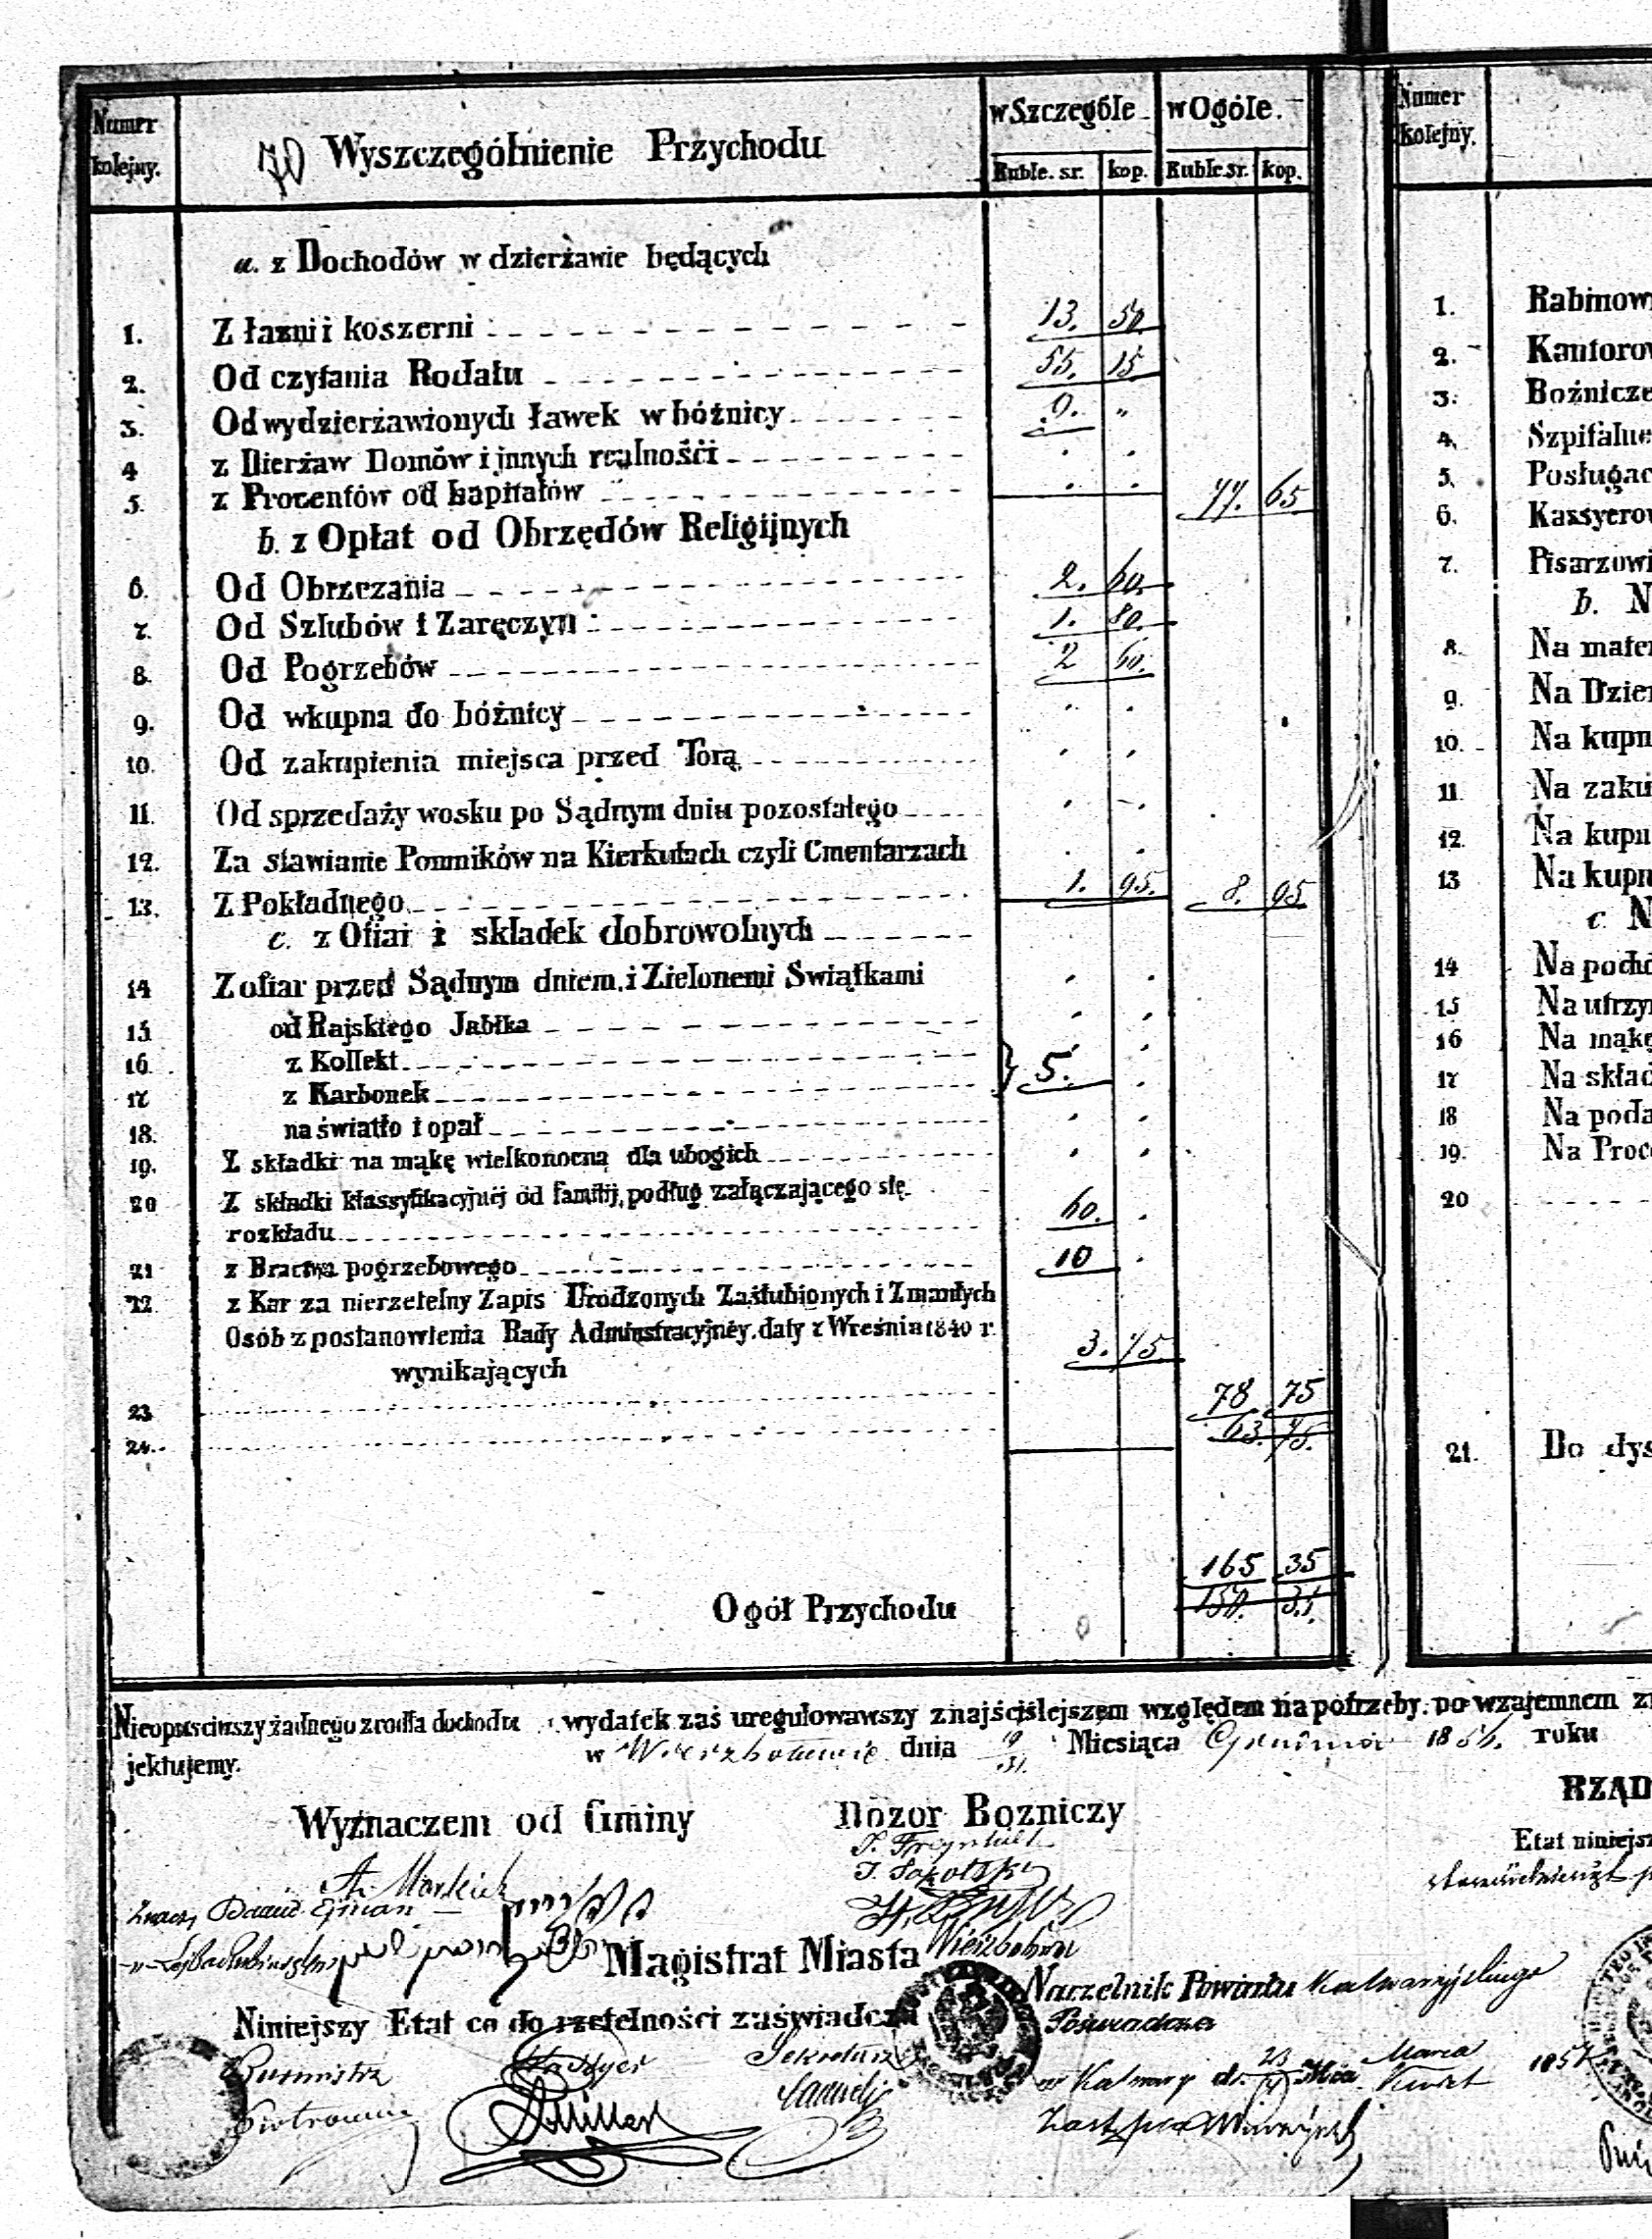 Numer kolejny. 70 Wyszczegółnienie Przychodu w Szczególe w Ogóle.
Ruble. sr. kop. Ruble sr. kop.
a. z Dochodów w dzierżawie będących
1. Z łaźni i koszerni 13. 50.
2. Od czytania Rodału 55. 15
3. Od wydzierżawionych ławek w bóżnicy 9. "
4 z Dierżaw Domów i jnnych realnośći
5. z Procentów od kapitałów 77. 65
b. z Opłat od Obrzędów Religijnych
6. Od Obrzezania 2. 60.
7. Od Szlubów i Zaręczyn 1. 80.
8. Od Pogrzebów 2 60.
9. Od wkupna do bóżnicy
10. Od zakupienia miejsca przed Torą
11. Od sprzedaży wosku po Sądnym dniu pozostałego
12. Za stawianie Pomników na Kierkutach czyli Cmentarzach
13. Z Pokładnego 1. 95. 8. 95
c. z Ofiar i składek dobrowolnych
14 Z ofiar przed Sądnym dniem i Zielonemi Swiątkami
15 od Rajskiego Jabłka
16 z Kollekt
17 z Karbonek } 5.
18. na światło i opał
19. Z składki na mąkę wielkonocną dla ubogich
20 Z składki klassyfikacyjnéj od familij, podług załączającego się
rozkładu 60.
21 z Bractwa pogrzebowego 10
22 z Kar za nierzetelny Zapis Urodzonych Zaślubionych i Zmarłych
Osób z postanowienia Rady Administracyjnéy daty z Wreśnia 1840 r.
wynikających 3. 75.
78 75
23 63. 75.
24.
165 35
Ogół Przychodu 150. 35.
Nieopuściwszy żadnego zrodła dochodu wydatek zaś uregulowawszy znajściślejszem względem na potrzeby po wzajemnem
jektujemy. w Wierzbołowie dnia 19/31. Miesiąca Grudnia 1856. roku
Wyznaczeni od Gminy Dozor Bozniczy
Magistrat Miasta Wierzbołowa
Niniejszy Etat co do rzetelności zaświadcza
Burmistrz Kassyer Sekretarz
Miller
Naczelnik Powiatu Kalwaryjskiego
Poswiadcza
Numer kolejny.
1. Rabinow
2. Kantorow
3. Bożnicze
4. Szpitalne
5. Posługac
6. Kassyerow
7. Pisarzowi
b. N
8. Na mater
9. Na Dzier
10. Na kupn
11 Na zaku
12. Na kupn
13 Na kupn
c. N
14 Na pocho
15 Na utrzy
16 Na mąkę
17 Na skład
18 Na poda
19. Na Proc
20
21. Do dys
RZĄD
Etat niniejsz